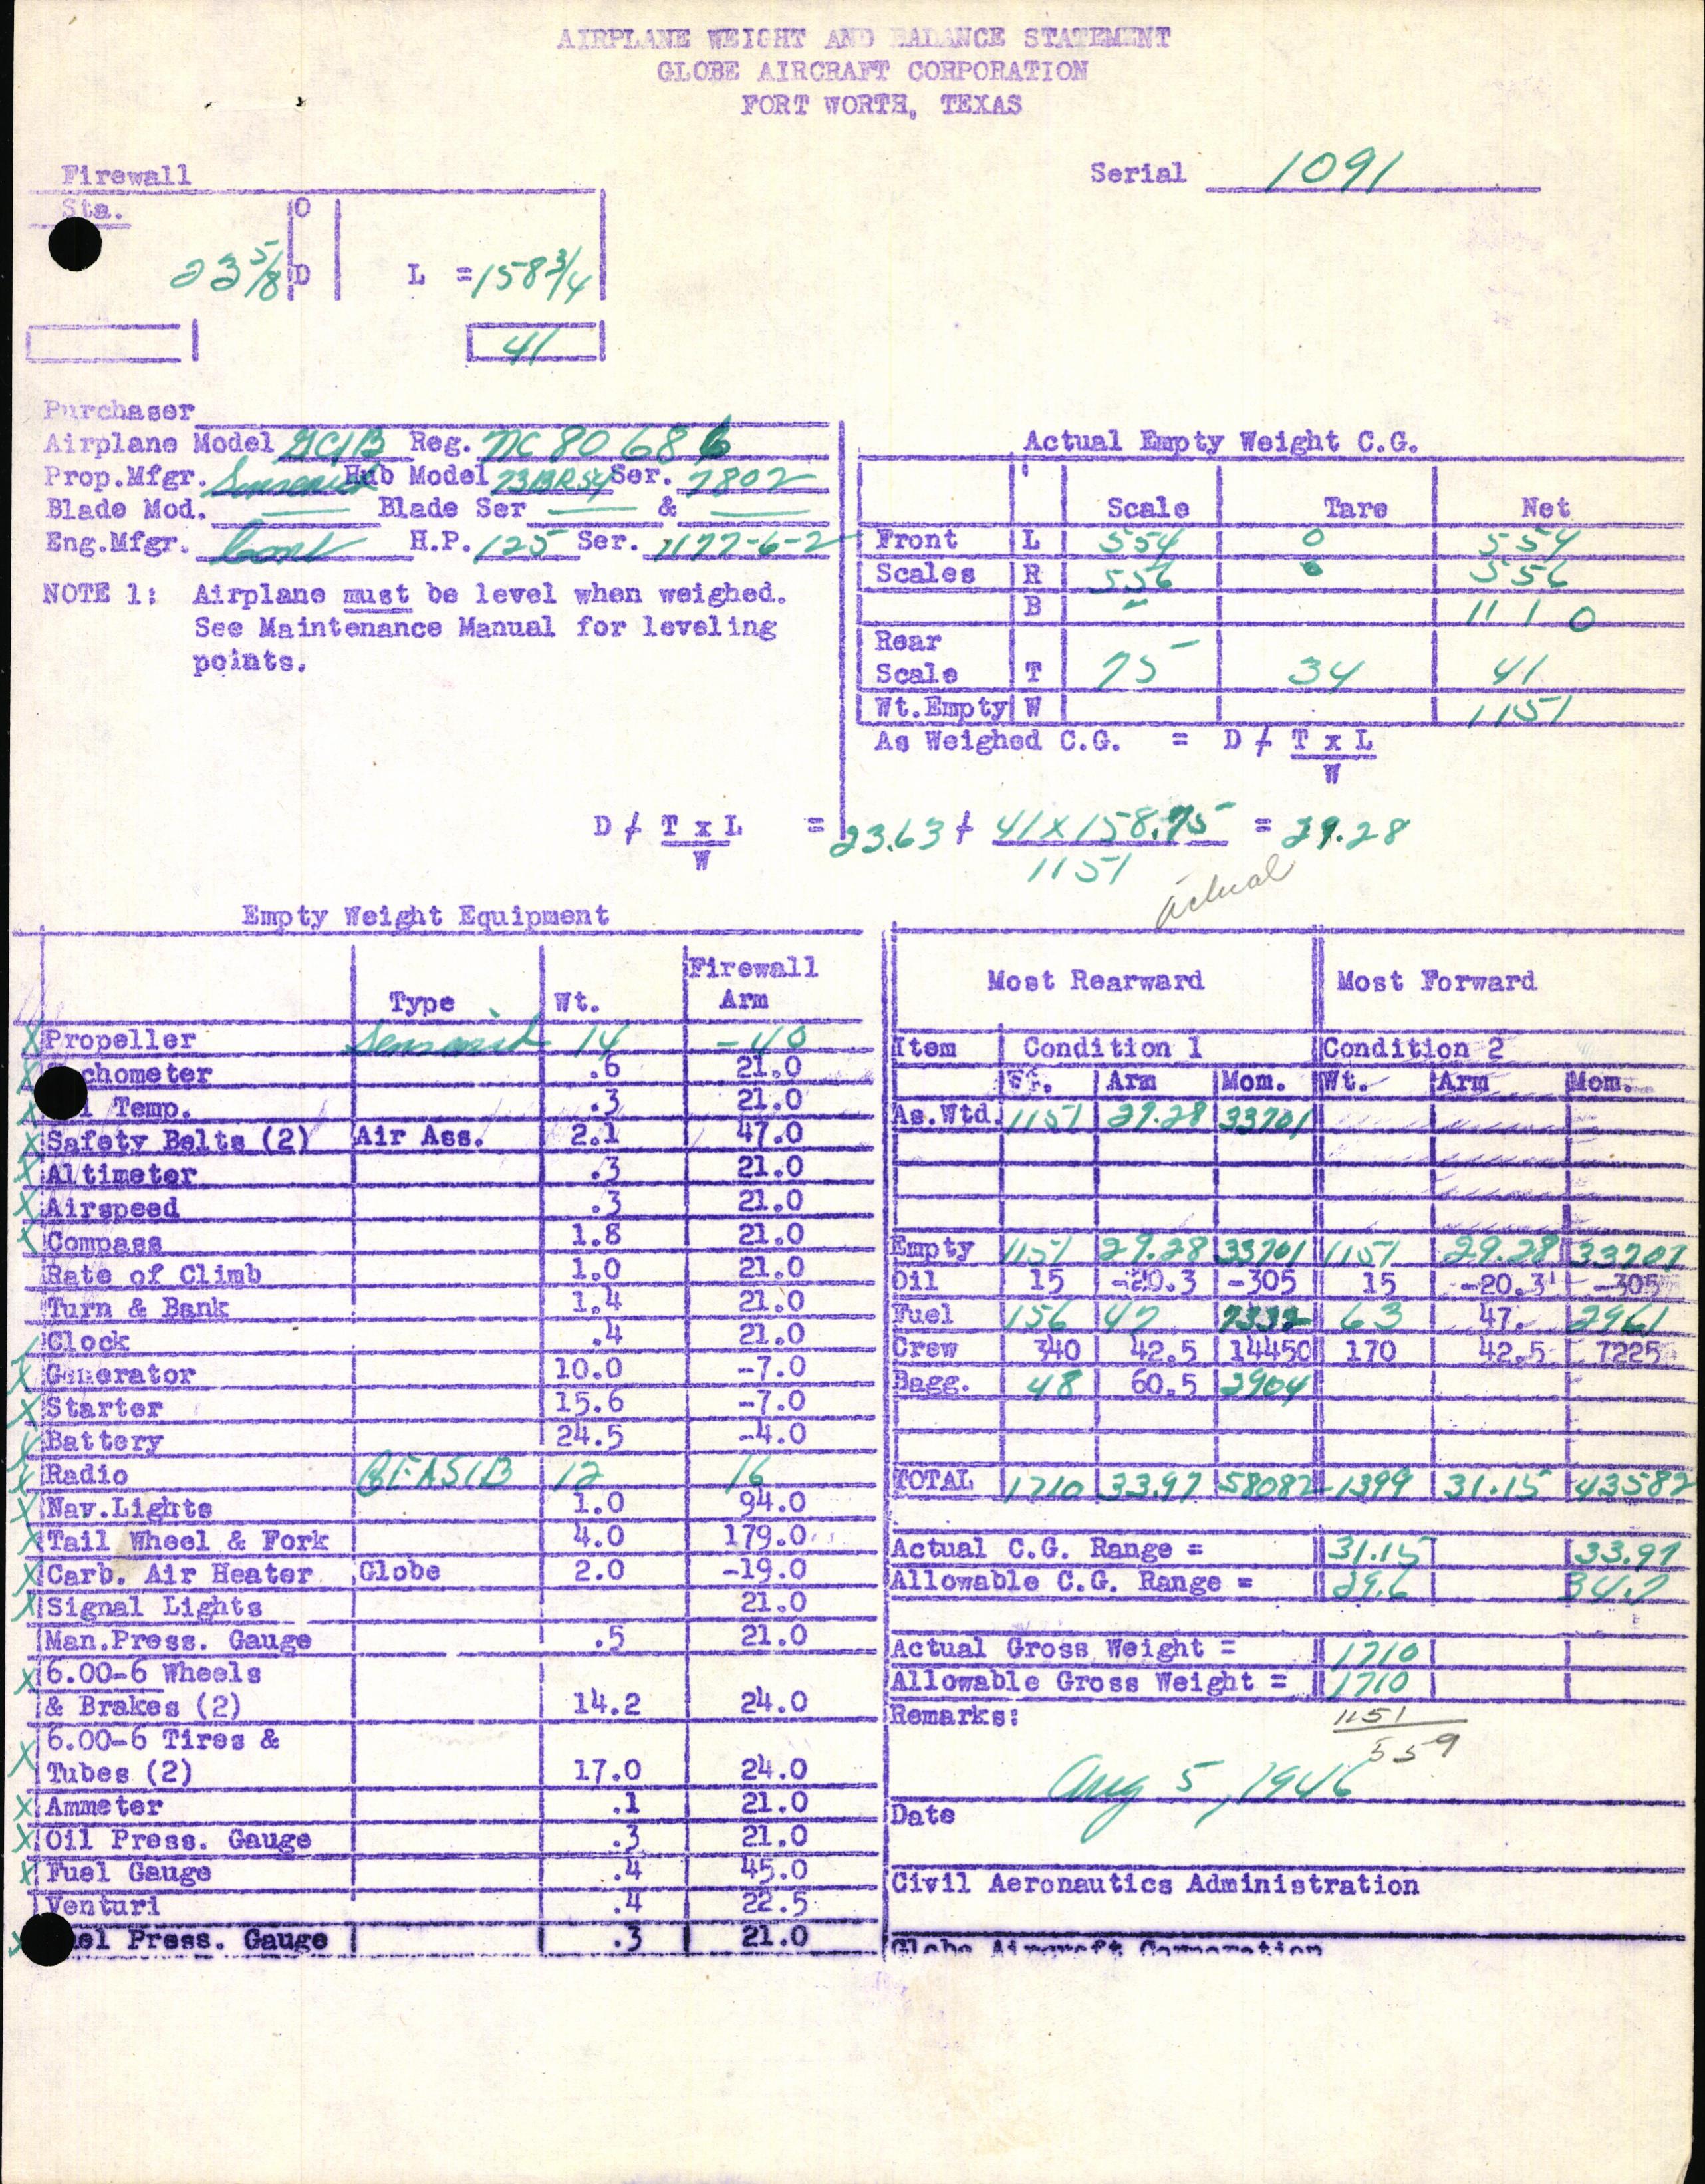 AIRPLANE WEIGHT AND BALANCE STATEMENT
GLOBE AIRCRAFT CORPORATION
FORT WORTH, TEXAS
Serial 1091
Firewall
Sta. O
23 5/8 D L = 158 3/4
41
Purchaser
Airplane Model GC1B Reg. NC 80686
Prop.Mfgr. Hub Model 73BR54 Ser. 7802
Blade Mod. — Blade Ser — & —
Eng.Mfgr. Cont H.P. 125 Ser. 1177-6-2
NOTE 1: Airplane must be level when weighed.
See Maintenance Manual for leveling
points.
Actual Empty Weight C.G.
Scale Tare Net
Front L 554 0 554
Scales R 556 0 556
B - 1110
Rear
Scale T 75 34 41
Wt.Empty W 1151
As Weighed C.G. = D / T x L
W
D / T x L = 23.63 + 41 X 158.75 = 29.28
W 1151
actual
Empty Weight Equipment
Type Wt. Firewall Arm
X Propeller 14 -40
X chometer .6 21.0
X l Temp. .3 21.0
X Safety Belts (2) Air Ass. 2.1 47.0
X Altimeter .3 21.0
X Airspeed .3 21.0
X Compass 1.8 21.0
Rate of Climb 1.0 21.0
Turn & Bank 1.4 21.0
Clock .4 21.0
X Generator 10.0 -7.0
X Starter 15.6 -7.0
X Battery 24.5 -4.0
X Radio 12 16
X Nav.Lights 1.0 94.0
X Tail Wheel & Fork 4.0 179.0
X Carb. Air Heater Globe 2.0 -19.0
X Signal Lights 21.0
Man.Press. Gauge .5 21.0
X 6.00-6 Wheels
& Brakes (2) 14.2 24.0
X 6.00-6 Tires &
Tubes (2) 17.0 24.0
X Ammeter .1 21.0
X Oil Press. Gauge .3 21.0
X Fuel Gauge .4 45.0
Venturi .4 22.5
X el Press. Gauge .3 21.0
Most Rearward Most Forward
Item Condition 1 Condition 2
Wt. Arm Mom. Wt. Arm Mom.
As.Wtd. 1151 29.28 33701
Empty 1151 29.28 33701 1151 29.28 33701
Oil 15 -20.3 -305 15 -20.3 -305
Fuel 156 47 7332 63 47. 2961
Crew 340 42.5 14450 170 42.5 7225
Bagg. 48 60.5 2904
TOTAL 1710 33.97 58082 1399 31.15 43582
Actual C.G. Range = 31.15 33.97
Allowable C.G. Range = 29.6 34.7
Actual Gross Weight = 1710
Allowable Gross Weight = 1710
Remarks: 1151
559
Aug 5, 1946
Date
Civil Aeronautics Administration
Globe Aircraft Corporation